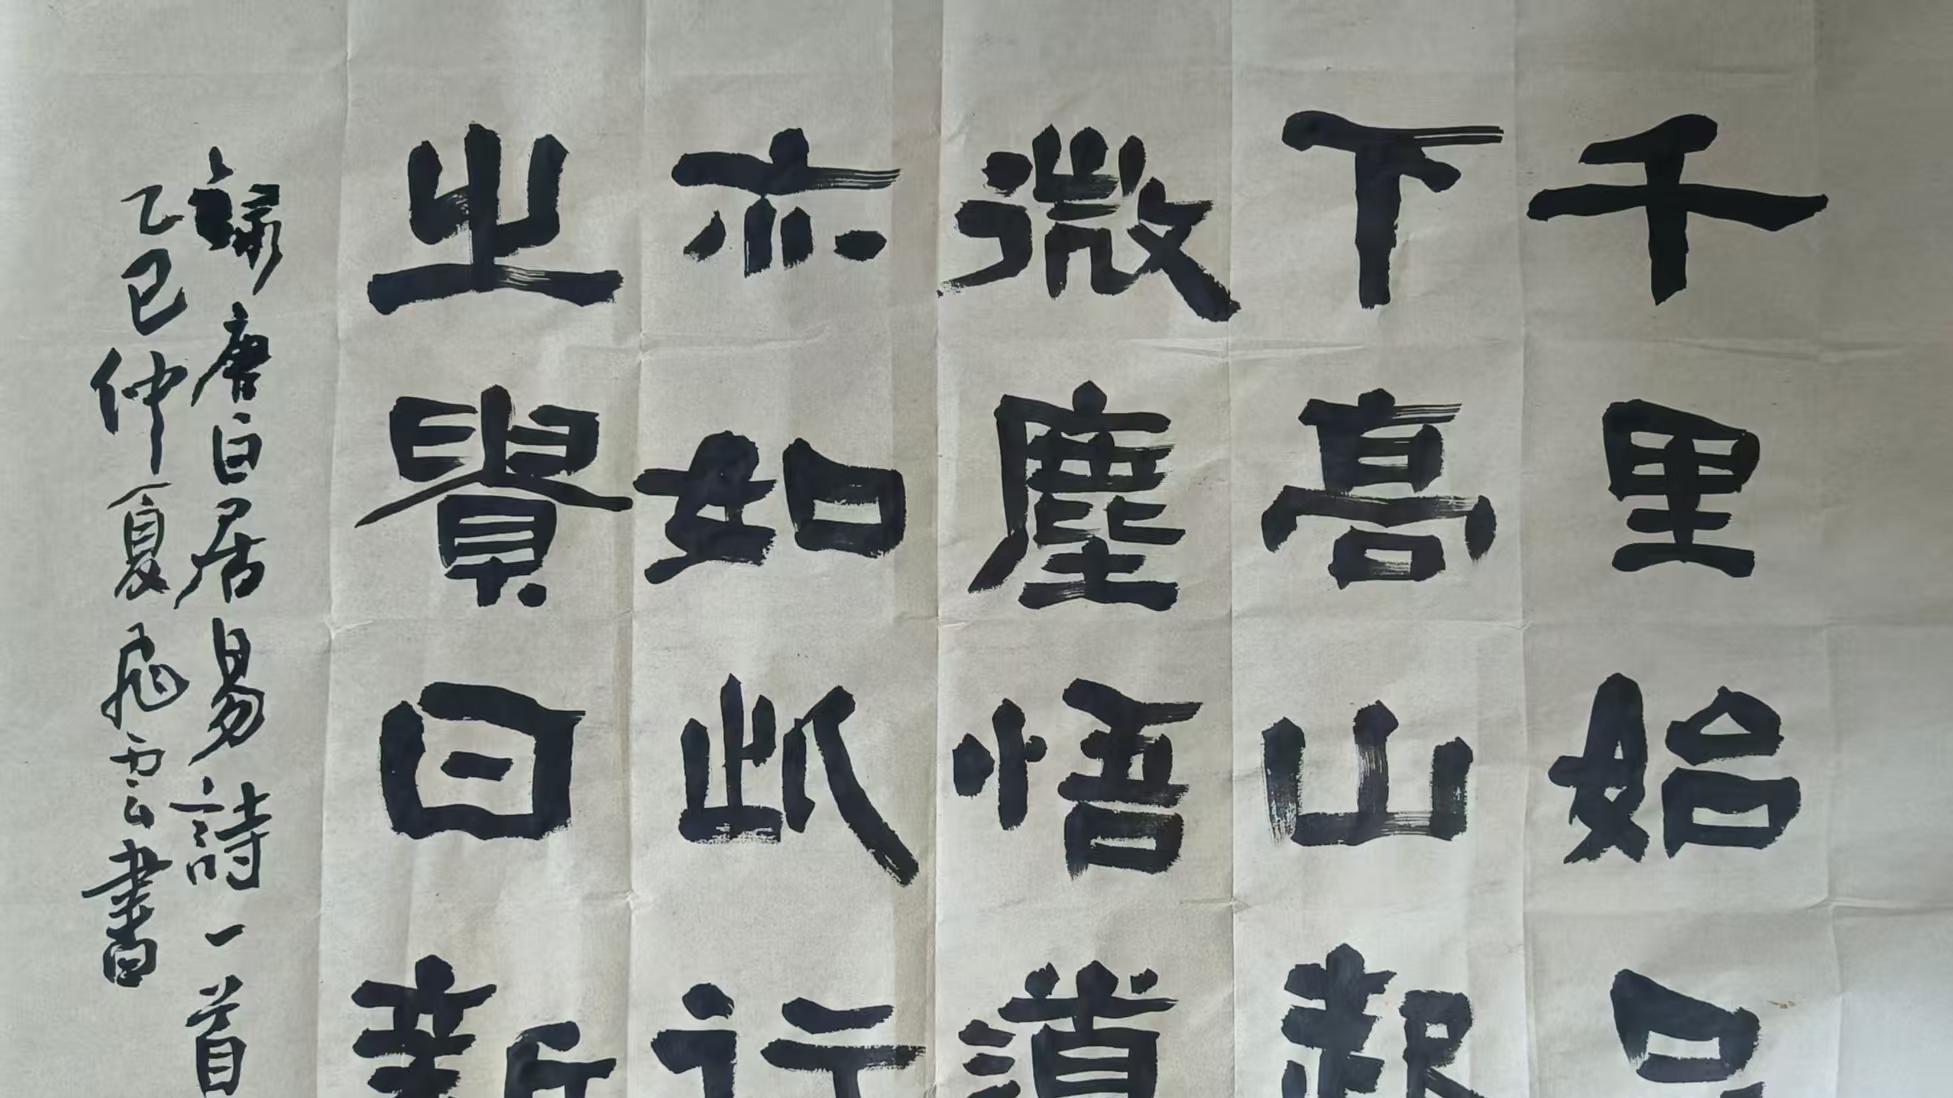 千里始足
下高山起
微塵悟道
亦如此行
之貴日新
錄唐白居易詩一首
乙巳仲夏飛雲書